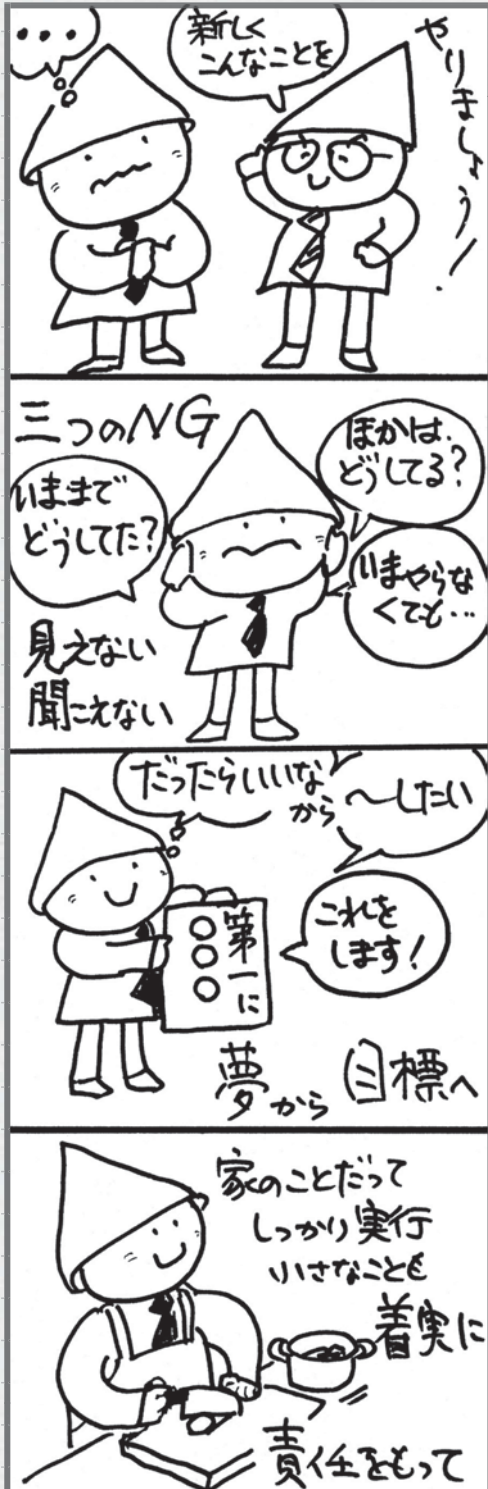 ・・・
新しく
こんなことを
やりましょう！
三つのNG
いままで
どうしてた？
ほかは、
どうしてる？
いまやらな
くても…
見えない
聞こえない
だったらいいな
から
～したい
これを
します！
第一に
○○○
夢から 目標へ
家のことだって
しっかり実行
小さなことを
着実に
責任をもって